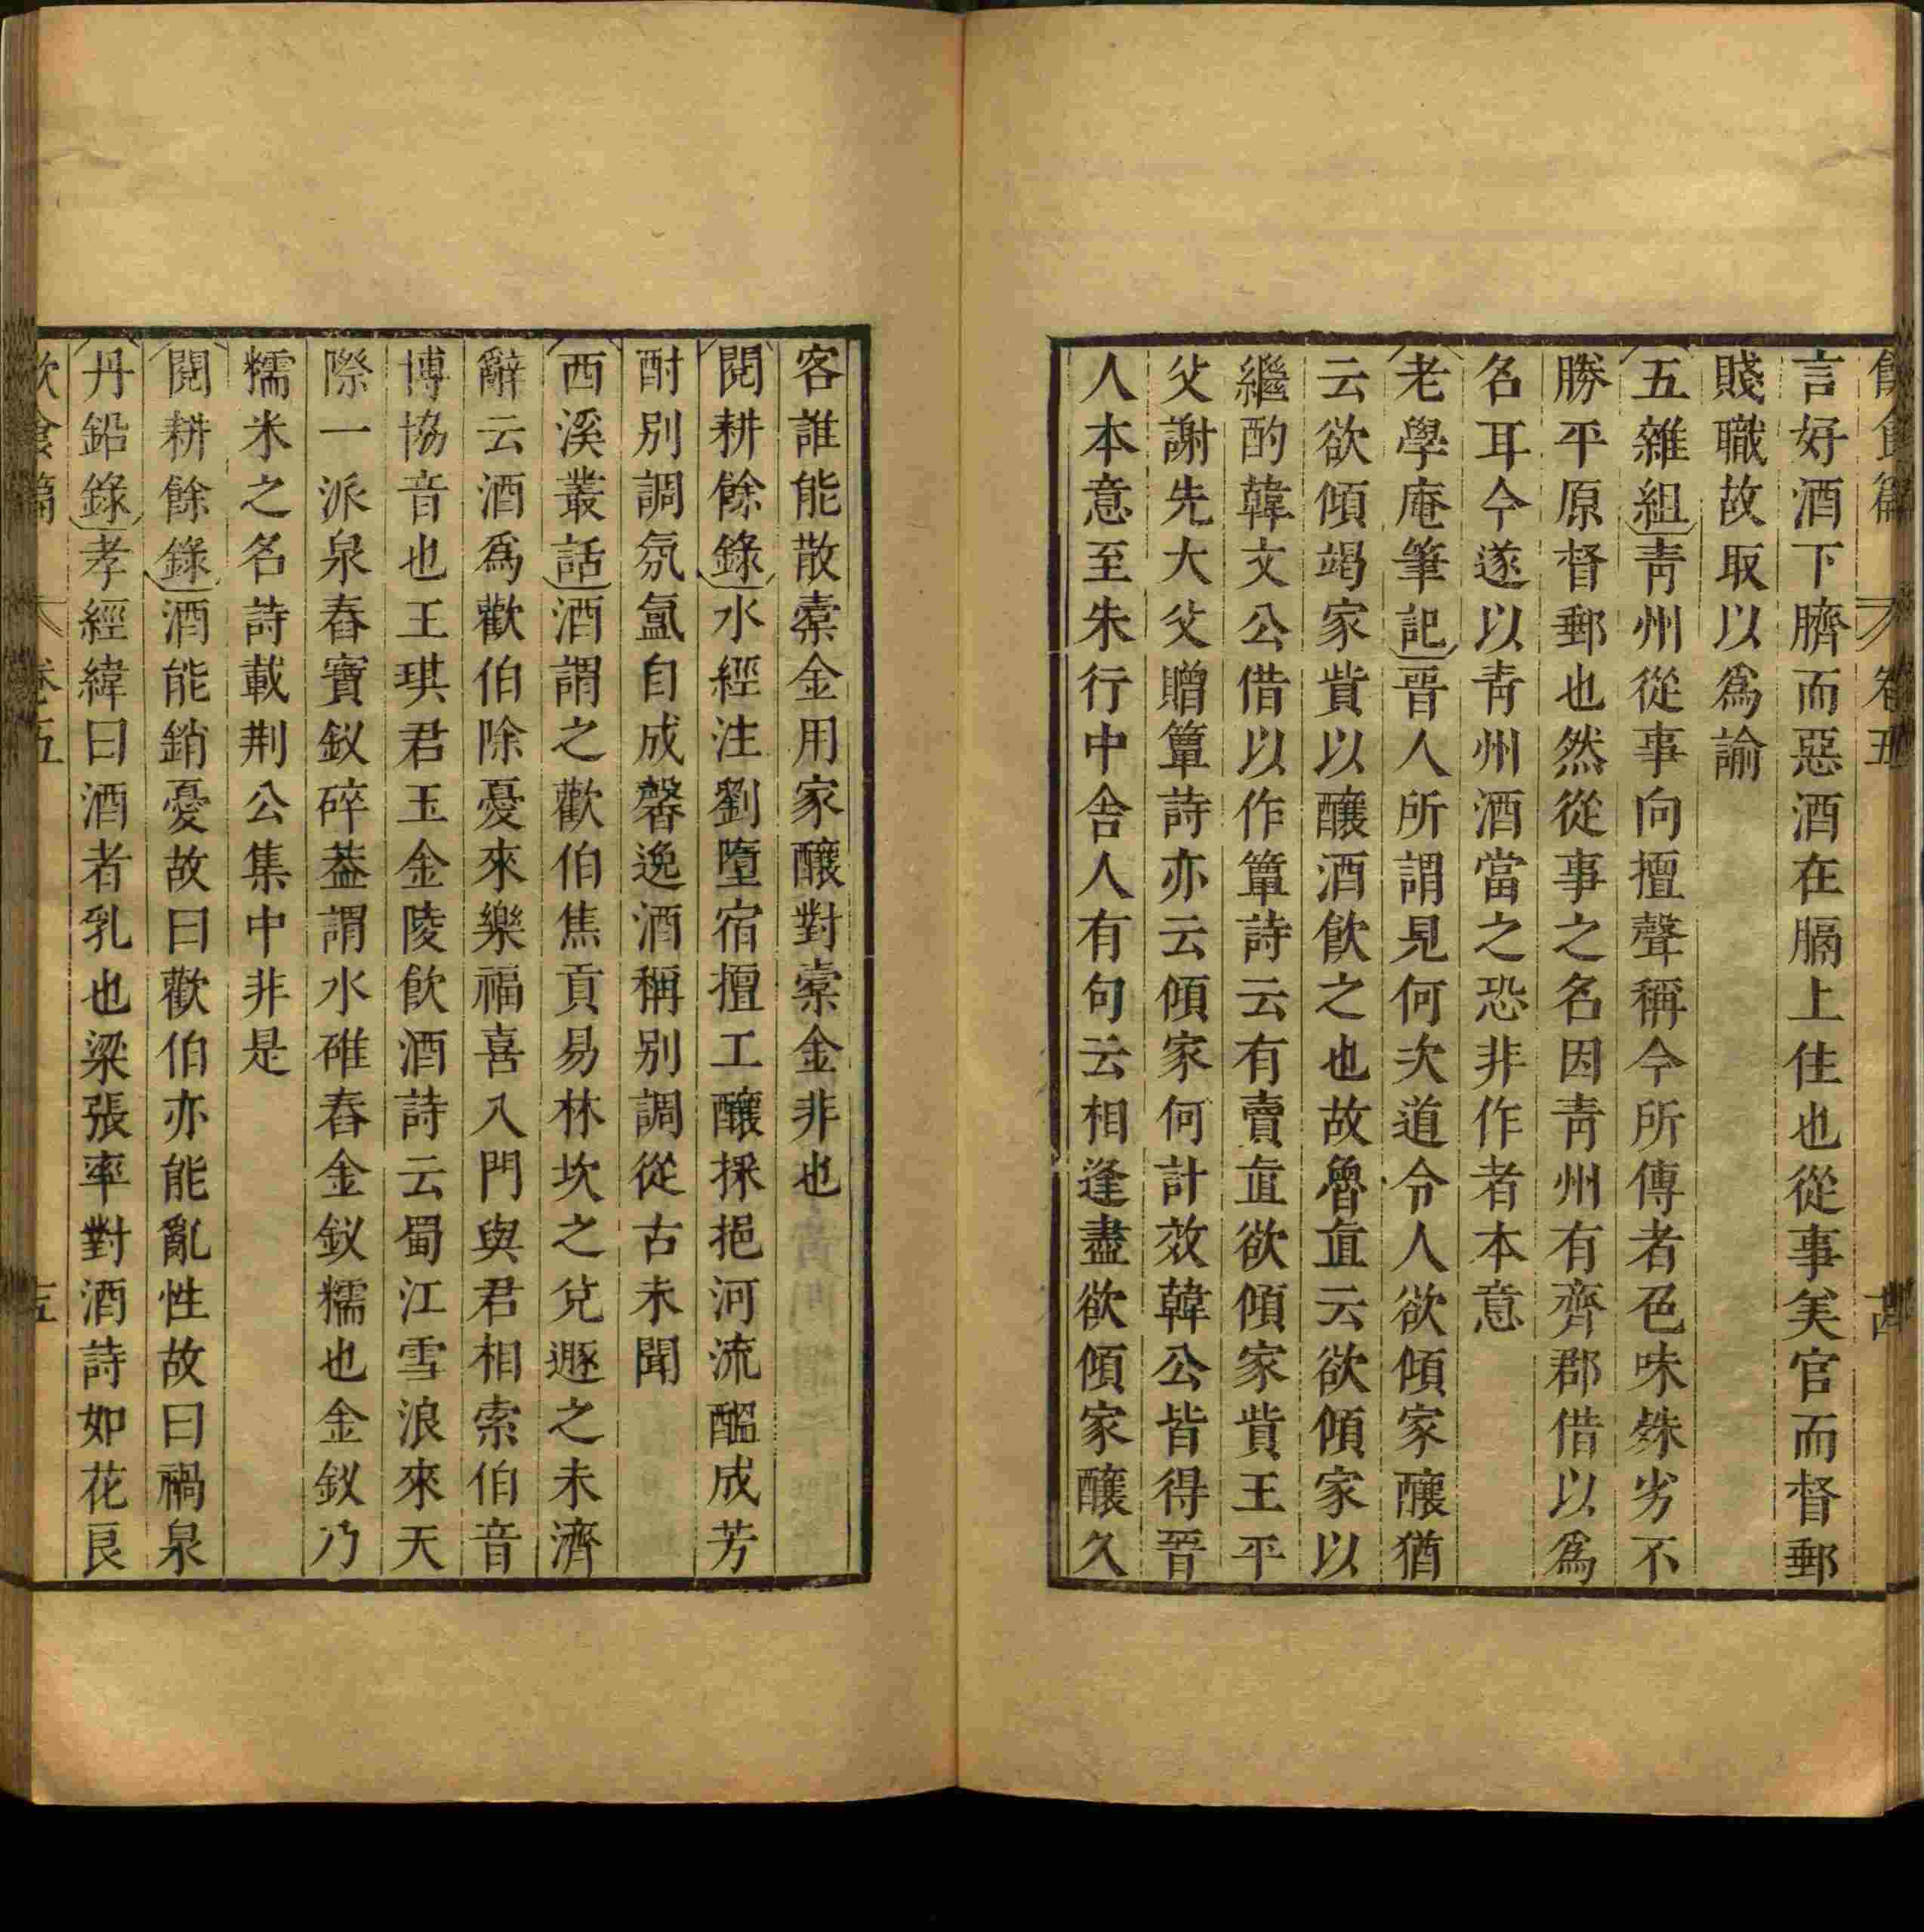 飲食篇 卷五 十四
言好酒下臍而惡酒在膈上住也從事美官而督郵
賤職故取以爲諭
五雜組靑州從事向擅聲稱今所傳者色味殊劣不
勝平原督郵也然從事之名因靑州有齊郡借以爲
名耳今遂以靑州酒當之恐非作者本意
老學庵筆記晉人所謂見何次道令人欲傾家釀猶
云欲傾竭家貲以釀酒飮之也故魯直云欲傾家以
繼酌韓文公借以作簟詩云有賣直欲傾家貲王平
父謝先大父贈簟詩亦云傾家何計效韓公皆得晉
人本意至朱行中舍人有句云相逢盡欲傾家釀久
客誰能散橐金用家釀對橐金非也
閱耕餘錄水經注劉墮宿擅工釀採挹河流醞成芳
酎別調氛氳自成馨逸酒稱別調從古未聞
西溪叢話酒謂之歡伯焦貢易林坎之兌遯之未濟
辭云酒爲歡伯除憂來樂福喜入門與君相索伯音
博協音也王琪君玉金陵飮酒詩云蜀江雪浪來天
際一派泉舂寶釵碎葢謂水碓舂金釵糯也金釵乃
糯米之名詩載荆公集中非是
閱耕餘錄酒能銷憂故曰歡伯亦能亂性故曰禍泉
丹鉛錄孝經緯曰酒者乳也梁張率對酒詩如花良
飲食篇 卷五 十五